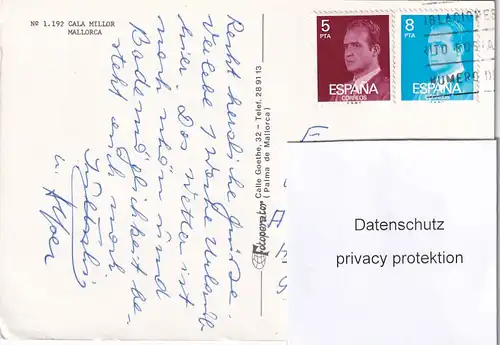 Nº 1.192 CALA MILLOR
MALLORCA
Recht herzliche Grüsse.
Verlebe 1 Woche Urlaub
hier. Das Wetter ist
noch schön und
Bademöglichkeit be-
steht auch noch.
u.
Fotoperator Calle Goethe, 32 - Telef. 28 91 13
(Palma de Mallorca)
5
PTA
ESPAÑA
CORREOS
8
PTA
ESPAÑA
CORREOS
NUMERO D
Datenschutz
privacy protektion